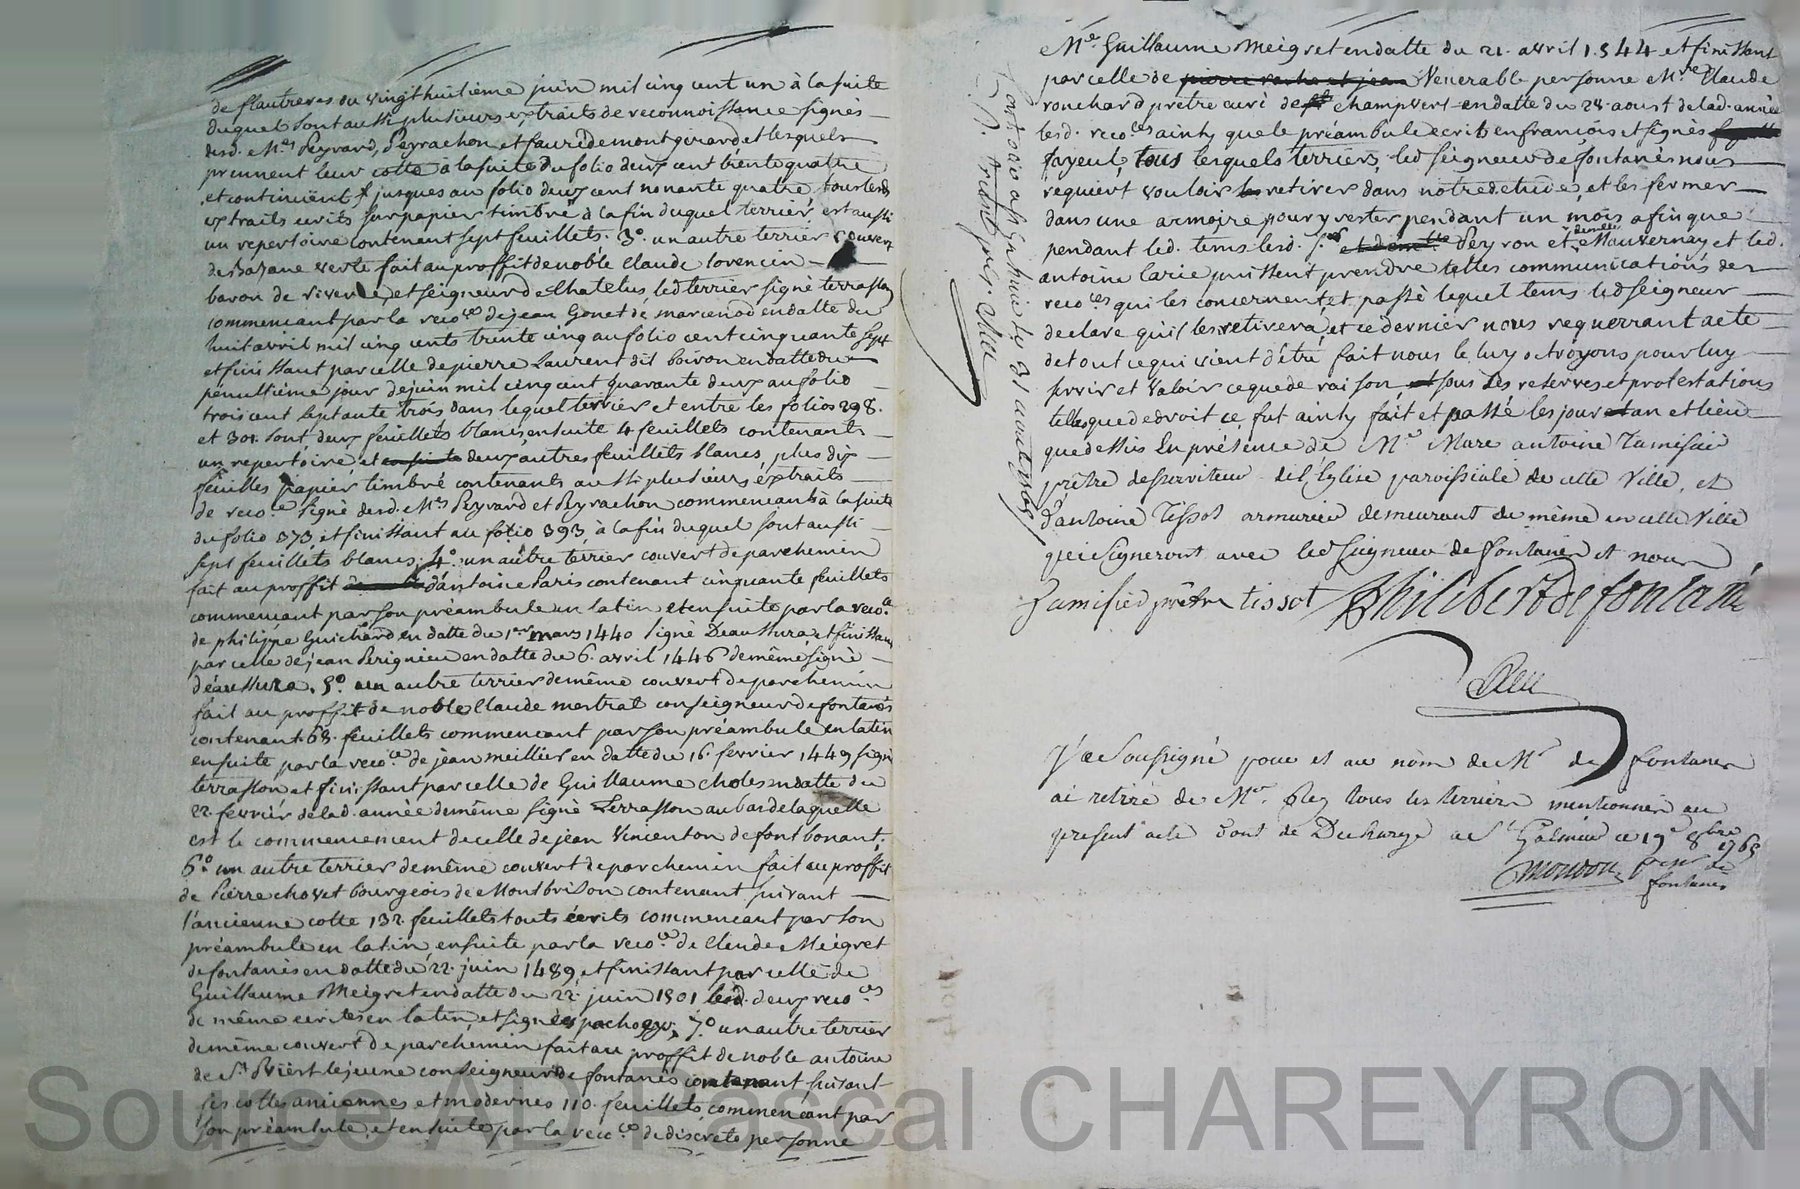 de flautreres du vingt huitieme juin mil cinq cent un à la suite
duquel sont aussi plusieurs extraits de reconnoissance signés
desd. Mes Peyrard, Peyrachon et faure de montgirard et lesquels
prennent leur cotte à la suite du folio deux cent trente quatre
et continuent jusques au folio deux cent nonante quatre, tous lesd.
extraits ecrits sur papier timbré à la fin duquel terrier, est aussi
un repertoire contenant sept feuillets. 3o. un autre terrier couvert
de bazane verte fait au proffit de noble Claude lorencin
baron de riverie, et seigneur de Chatelus, led terrier signé terrasson
commencant par la recoce de jean Gonet de marcenod en datte du
huit avril mil cinq cents trente cinq au folio cent cinquante sept
et finissant par celle de pierre Laurent dit boiron en datte du
penultieme jour de juin mil cinq cent quarante deux au folio
trois cent septante trois dans lequel terrier et entre les folios 298.
et 301. sont deux feuillets blancs, ensuite 4 feuillets contenants
un repertoire, et deux autres feuillets blancs, plus dix
feuilles papier timbré contenants aussi plusieurs extraits
de recoce signé desd. Mes Peyrard et Peyrachon commencant à la suite
du folio 373 et finissant au folio 393, à la fin duquel sont aussi
sept feuillets blancs, 4o. un autre terrier couvert de parchemin
fait au proffit d'antoine Paris contenant cinquante feuillets
commençant par son préambule en latin et ensuite par la recoce
de philippe Guichard en datte du 1er mars 1440 signé Deaussura, et finissant
par celle de jean Perignieu en datte du 6. avril 1446 de même signé
deaussura. 5o. un autre terrier de même couvert de parchemin
fait au proffit de noble Claude mestrat conseigneur de fontanès
contenant 68. feuillets commencant par son préambule en latin
ensuite par la recoce de jean meillier en datte du 16. fevrier 1449 signé
terrasson et finissant par celle de Guillaume choles en datte du
22 fevrier de lad. année de même signé terrasson au bas de laquelle
est le commencement de celle de jean vincenton de font bonant,
6o. un autre terrier de même couvert de parchemin fait au proffit
de Pierre chovet bourgeois de Montbrison contenant suivant
l'ancienne cotte 132. feuillets touts écrits commencant par son
préambule en latin, ensuite par la recoce de Claude Meigret
de fontanès en datte du 22. juin 1489, et finissant par celle de
Guillaume Meigret en datte du 22. juin 1501 lesd. deux recoces
de même ecrites en latin, et signées 7o. un autre terrier
de même couvert de parchemin fait au proffit de noble antoine
de St. Priest le jeune conseigneur de fontanès contenant suivant
les cottes anciennes et modernes 110. feuillets, commencant par
son préambule, et ensuite par la recoce de discrete personne
Me. Guillaume Meigret en datte du 21. avril 1544 et finissant
par celle de Venerable personne Mre Claude
rouchard prêtre curé de champvert en datte du 28. aoust de lad. année
lesd. recoces ainsy que le préambule ecrit en francois et signés
fayeul, tous lesquels terriers, led seigneur de fontanès nous
requiert vouloir retirer dans notre etude, et les fermer
dans une armoire pour y rester pendant un mois afin que
pendant led. tems lesd. srs Peyron et demlle Mauvernay et led.
antoine larie puissent prendre telles communications des
recoces qui les concernent, et passé lequel tems led seigneur
declare qu'il les retirera, et ce dernier nous requerrant acte
de tout ce qui vient d'être fait nous le luy octroyons pour luy
servir et valoir ce que de raison, sous les reserves et protestations
telles que de droit ce fut ainsy fait et passé les jour an et lieu
que dessus En présence de Mre Marc antoine Tamisié
prêtre desserviteur de l'Eglise paroissiale de cette Ville, et
d'antoine Tissot armurier demeurant de même en cette Ville
qui signeront avec led seigneur de fontanès et nous
Tamisied prêtre tissot Philibert de fontanès
Contrôlé a St Galmier le 31 aout 1765
R. treize sols.
Je soussigné pour et au nom de Mr de fontanes
ai retiré de Me. Rey tous les terriers mentionnés au
present acte dont de Decharge a St Galmier ce 19e 8bre 1765
pour Mr de
fontanes
Source AD Pascal CHAREYRON